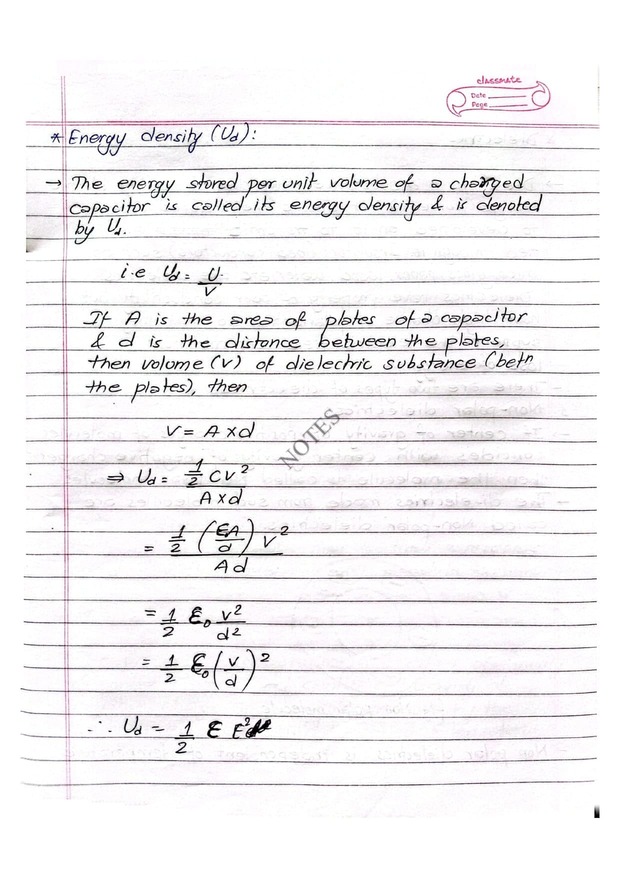 classmate
Date
Page
* Energy density (Ud):
→ The energy stored per unit volume of a charged
capacitor is called its energy density & is denoted
by Ud.
i.e Ud = U/V
If A is the area of plates of a capacitor
& d is the distance between the plates,
then volume (v) of dielectric substance (betn
the plates), then
V = A x d
NOTES
⇒ Ud = 1/2 CV² / A x d
= 1/2 (EA/d) V² / Ad
= 1/2 ε₀ V²/d²
= 1/2 ε₀ (V/d)²
∴ Ud = 1/2 ε E²